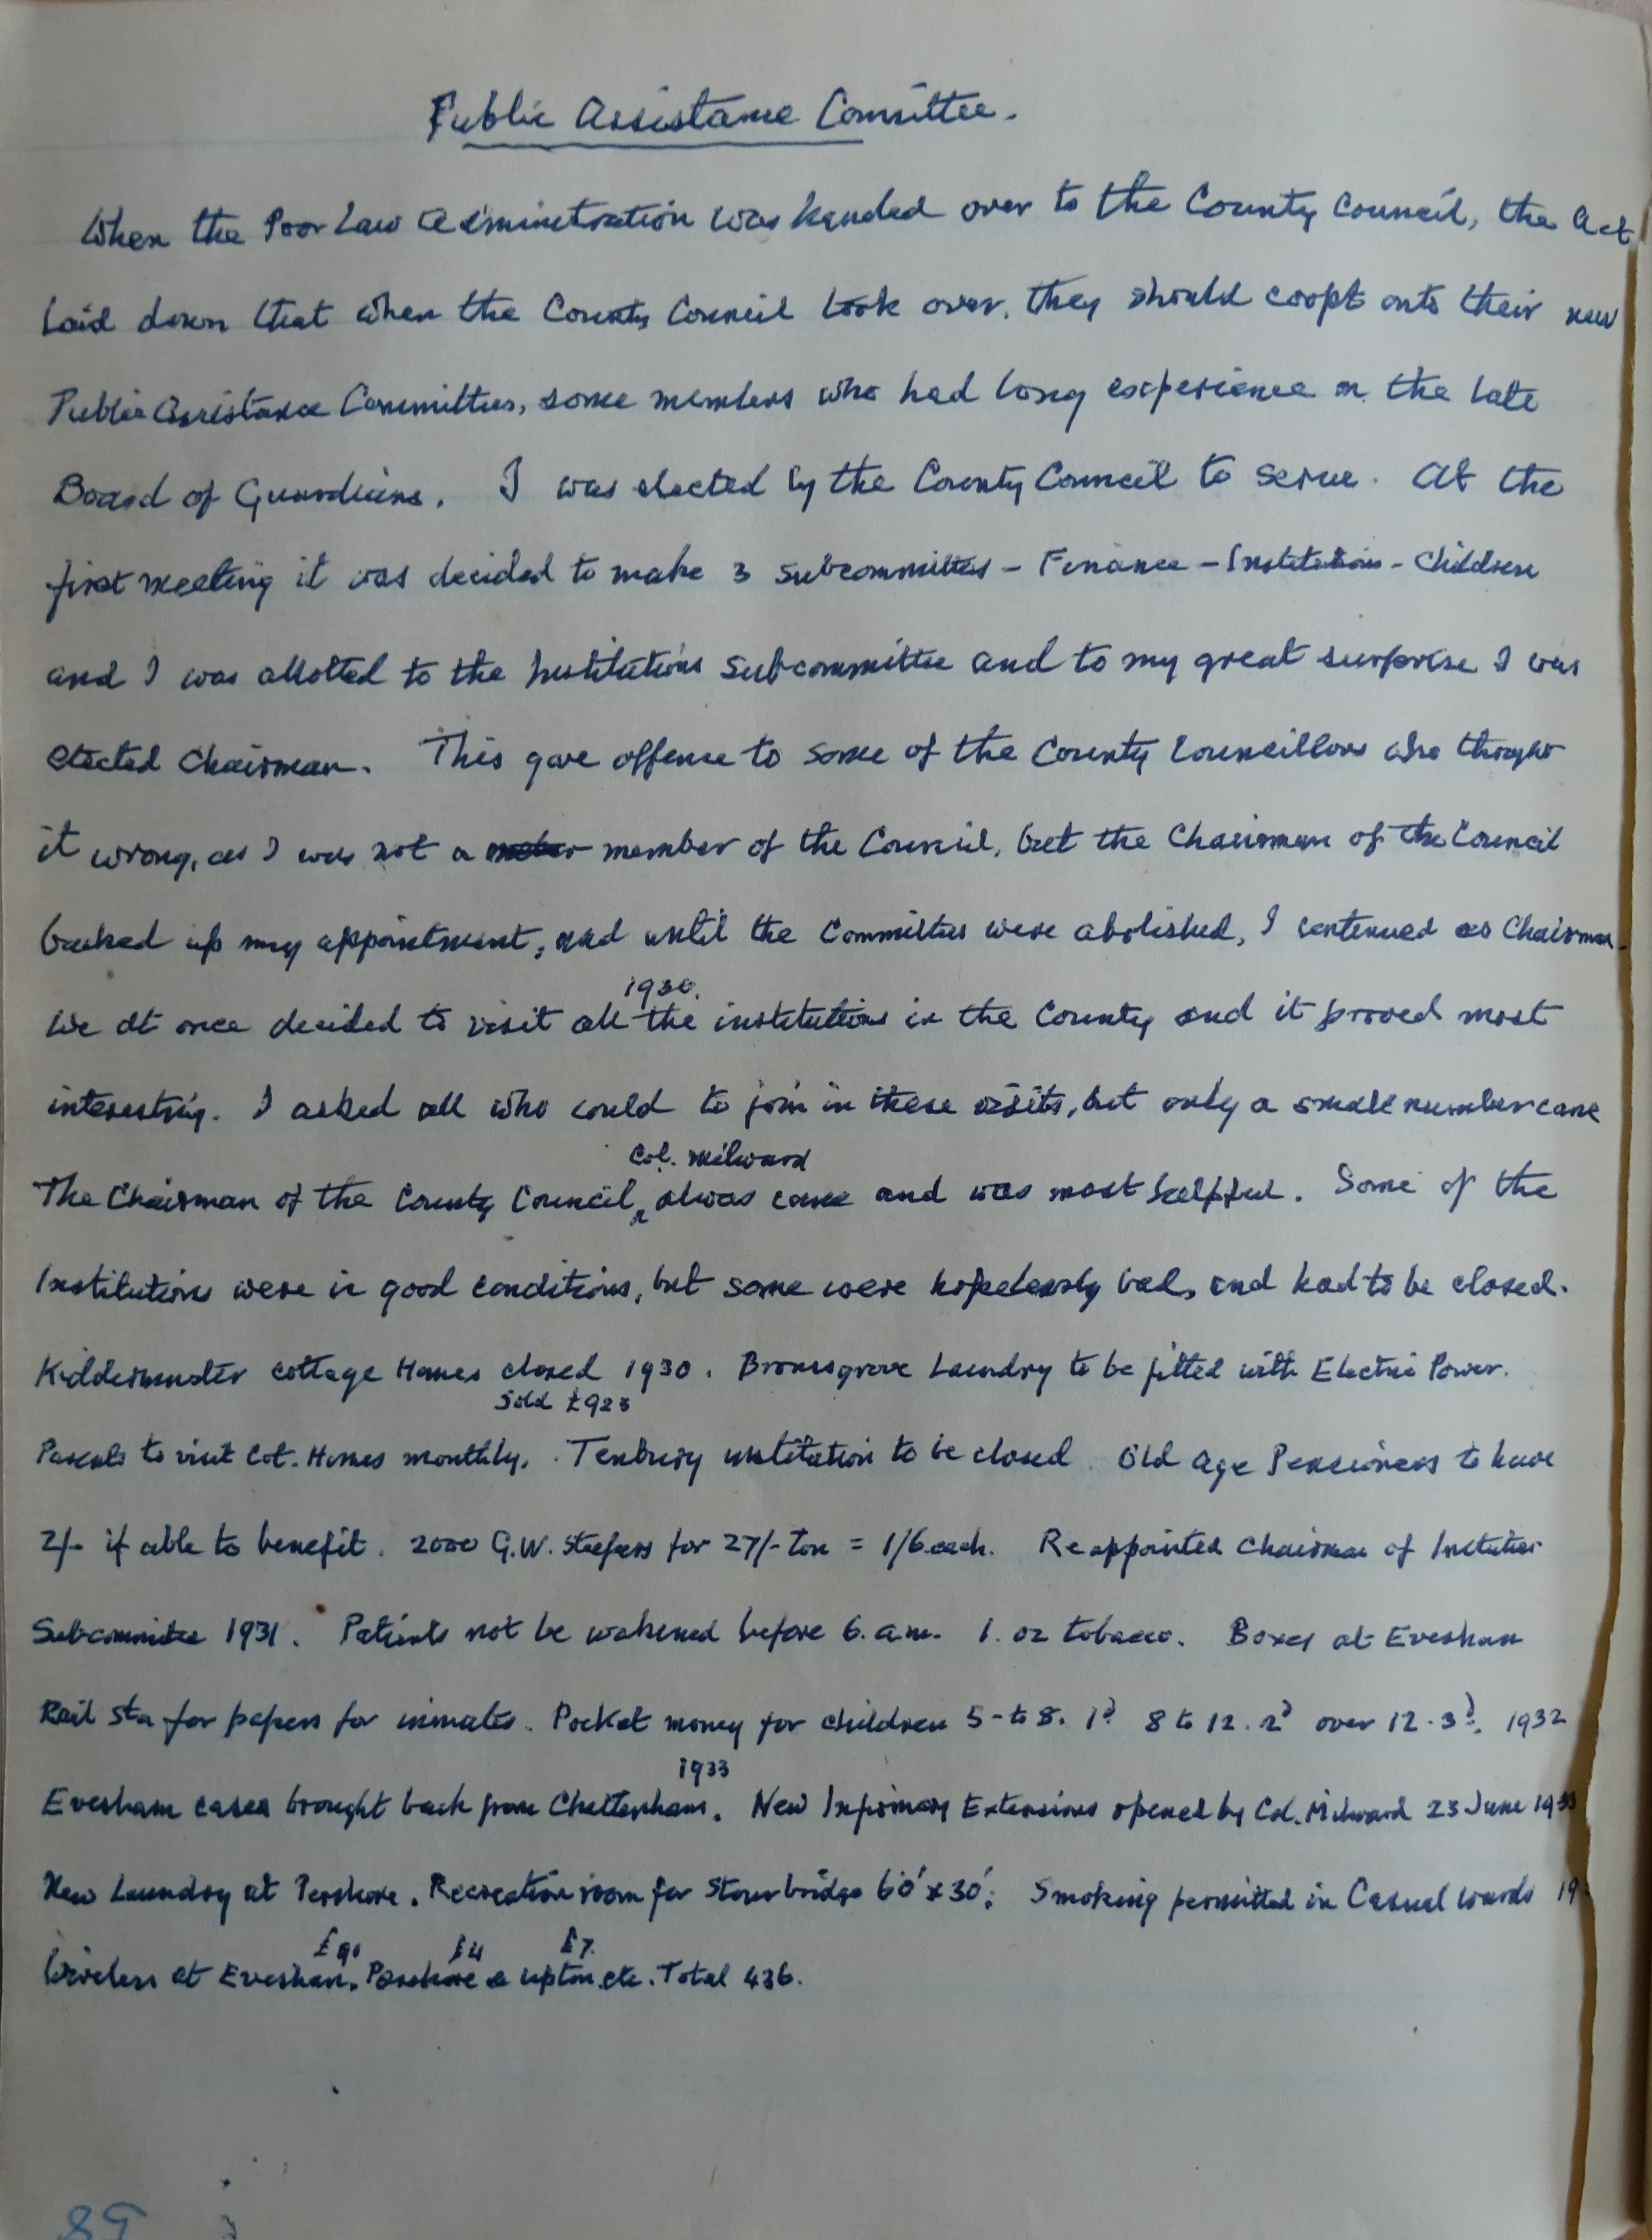 Public Assistance Committee.
When the Poor Law Administration was handed over to the County Council, the Act
laid down that when the County Council took over, they should coopt onto their new
Public Assistance Committees, some members who had long experience on the late
Board of Guardians. I was elected by the County Council to serve. At the
first meeting it was decided to make 3 subcommittees - Finance - Institutions - Children
and I was allotted to the Institutions Subcommittee and to my great surprise I was
elected Chairman. This gave offence to some of the County Councillors who thought
it wrong, as I was not a member of the Council, but the Chairman of the Council
backed up my appointment, and until the Committees were abolished, I continued as Chairman.
1930.
We at once decided to visit all the institutions in the County and it proved most
interesting. I asked all who could to join in these visits, but only a small number came
Col. Milward
The Chairman of the County Council, always came and was most helpful. Some of the
Institutions were in good conditions, but some were hopelessly bad, and had to be closed.
Kidderminster cottage Homes closed 1930. Bromsgrove Laundry to be fitted with Electric Power.
Sold £923
Parents to visit Cot. Homes monthly. Tenbury institution to be closed. Old Age Pensioners to have
2/- if able to benefit. 2000 G.W. Sleepers for 27/- ton = 1/6 each. Reappointed Chairman of Institution
Subcommittee 1931. Patients not be wakened before 6. a.m. 1. oz tobacco. Boxes at Evesham
Rail Sta for papers for inmates. Pocket money for children 5 - to 8. 1d 8 to 12. 2d over 12. 3d. 1932
1933
Evesham cases brought back from Cheltenham. New Infirmary Extensions opened by Col. Milward 23 June 1933
New Laundry at Pershore. Recreation room for Stourbridge 60' x 30'. Smoking permitted in Casual wards 19
£90 £4 £7.
Wireless at Evesham, Pershore & Upton etc. Total 436.
89